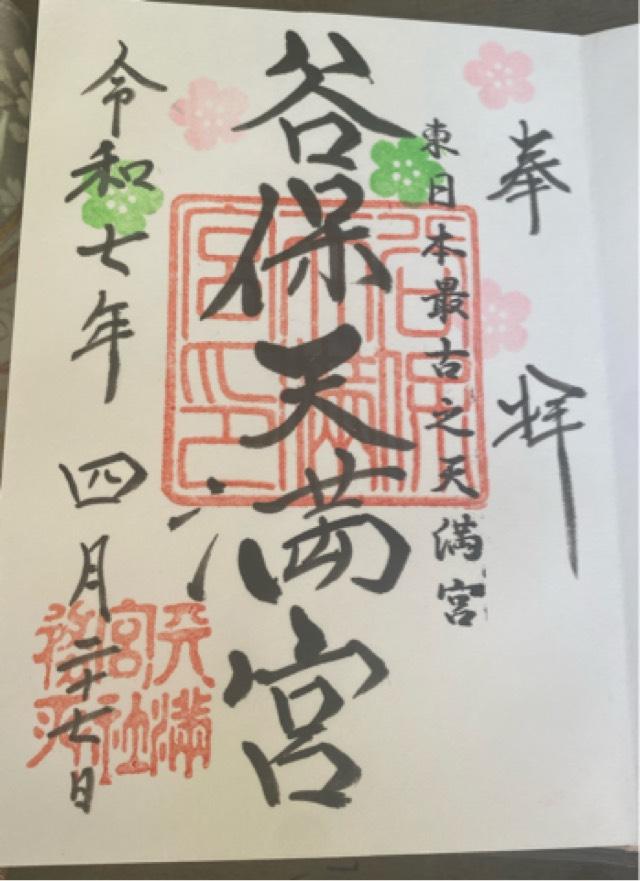 奉拝
東日本最古之天満宮
谷保天満宮
谷保天満宮印
令和七年四月二十七日
天満宮社務所